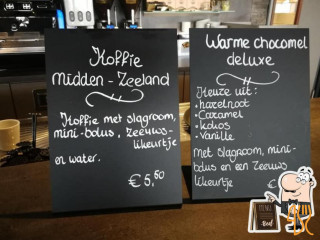 Koffie
Midden-Zeeland
Koffie met slagroom,
mini-bolus, zeeuws-
likeurtje
en water.
€5,50
Warme chocomel
deluxe
Keuze uit:
• hazelnoot
• Caramel
• kokos
• Vanille
Met slagroom, mini-
bolus en een Zeeuws
likeurtje
€